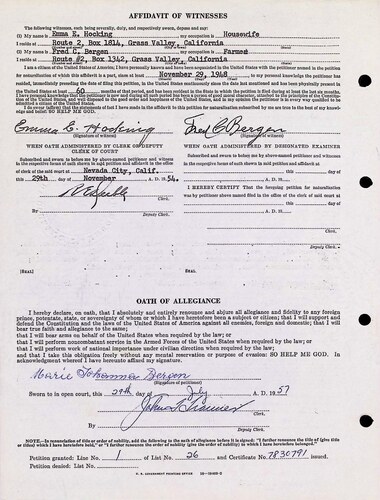 AFFIDAVIT OF WITNESSES
The following witnesses, each being severally, duly, and respectively sworn, depose and say:
(1) My name is Emma E. Hocking , my occupation is Housewife
I reside at Route 2, Box 1814, Grass Valley, California
(2) My name is Fred C. Bergen , my occupation is Farmer
I reside at Route #2, Box 1342, Grass Valley, California
I am a citizen of the United States of America; I have personally known and have been acquainted in the United States with the petitioner named in the petition
for naturalization of which this affidavit is a part, since at least November 29, 1948 , to my personal knowledge the petitioner has
resided, immediately preceding the date of filing this petition, in the United States continuously since the date last mentioned and has been physically present in
the United States at least 60 months of that period, and has been resident in the State in which the petition is filed during at least the last six months.
I have personal knowledge that the petitioner is now and during all such period has been a person of good moral character, attached to the principles of the Constitution
of the United States, and well disposed to the good order and happiness of the United States, and in my opinion the petitioner is in every way qualified to be
admitted a citizen of the United States.
I do swear (affirm) that the statements of fact I have made in this affidavit to this petition for naturalization subscribed by me are true to the best of my knowl-
edge and belief: SO HELP ME GOD.
Emma E. Hocking Fred C Bergen
(Signature of witness) (Signature of witness)
WHEN OATH ADMINISTERED BY CLERK OR DEPUTY
CLERK OF COURT
Subscribed and sworn to before me by above-named petitioner and witnesses
in the respective forms of oath shown in said petition and affidavit in the office
of the clerk of said court at Nevada City, Calif.
this 29th day of November A. D. 19 54.
Clerk.
By
Deputy Clerk.
[SEAL]
WHEN OATH ADMINISTERED BY DESIGNATED EXAMINER
Subscribed and sworn to before me by above-named petitioner and witnesses
in the respective forms of oath shown in said petition and affidavit at
this day of , A. D. 19
I HEREBY CERTIFY That the foregoing petition for naturalization was
by petitioner above named filed in the office of the clerk of said court at
this day of A. D. 19
Clerk.
By
Deputy Clerk.
[SEAL]
OATH OF ALLEGIANCE
I hereby declare, on oath, that I absolutely and entirely renounce and abjure all allegiance and fidelity to any foreign
prince, potentate, state, or sovereignty of whom or which I have heretofore been a subject or citizen; that I will support and
defend the Constitution and the laws of the United States of America against all enemies, foreign and domestic; that I will
bear true faith and allegiance to the same;
that I will bear arms on behalf of the United States when required by the law; or
that I will perform noncombatant service in the Armed Forces of the United States when required by the law; or
that I will perform work of national importance under civilian direction when required by the law;
and that I take this obligation freely without any mental reservation or purpose of evasion: SO HELP ME GOD. In
acknowledgment whereof I have hereunto affixed my signature.
Marie Johanna Bergen
(Signature of petitioner)
Sworn to in open court, this 29th day of July , A. D. 19 57
Clerk.
By
Deputy Clerk.
NOTE.—In renunciation of title or order of nobility, add the following to the oath of allegiance before it is signed: "I further renounce the title of (give title
or titles) which I have heretofore held," or "I further renounce the order of nobility (give the order of nobility) to which I have heretofore belonged."
Petition granted: Line No. 1 of List No. 26 and Certificate No. 7830791 issued.
Petition denied: List No.
U. S. GOVERNMENT PRINTING OFFICE